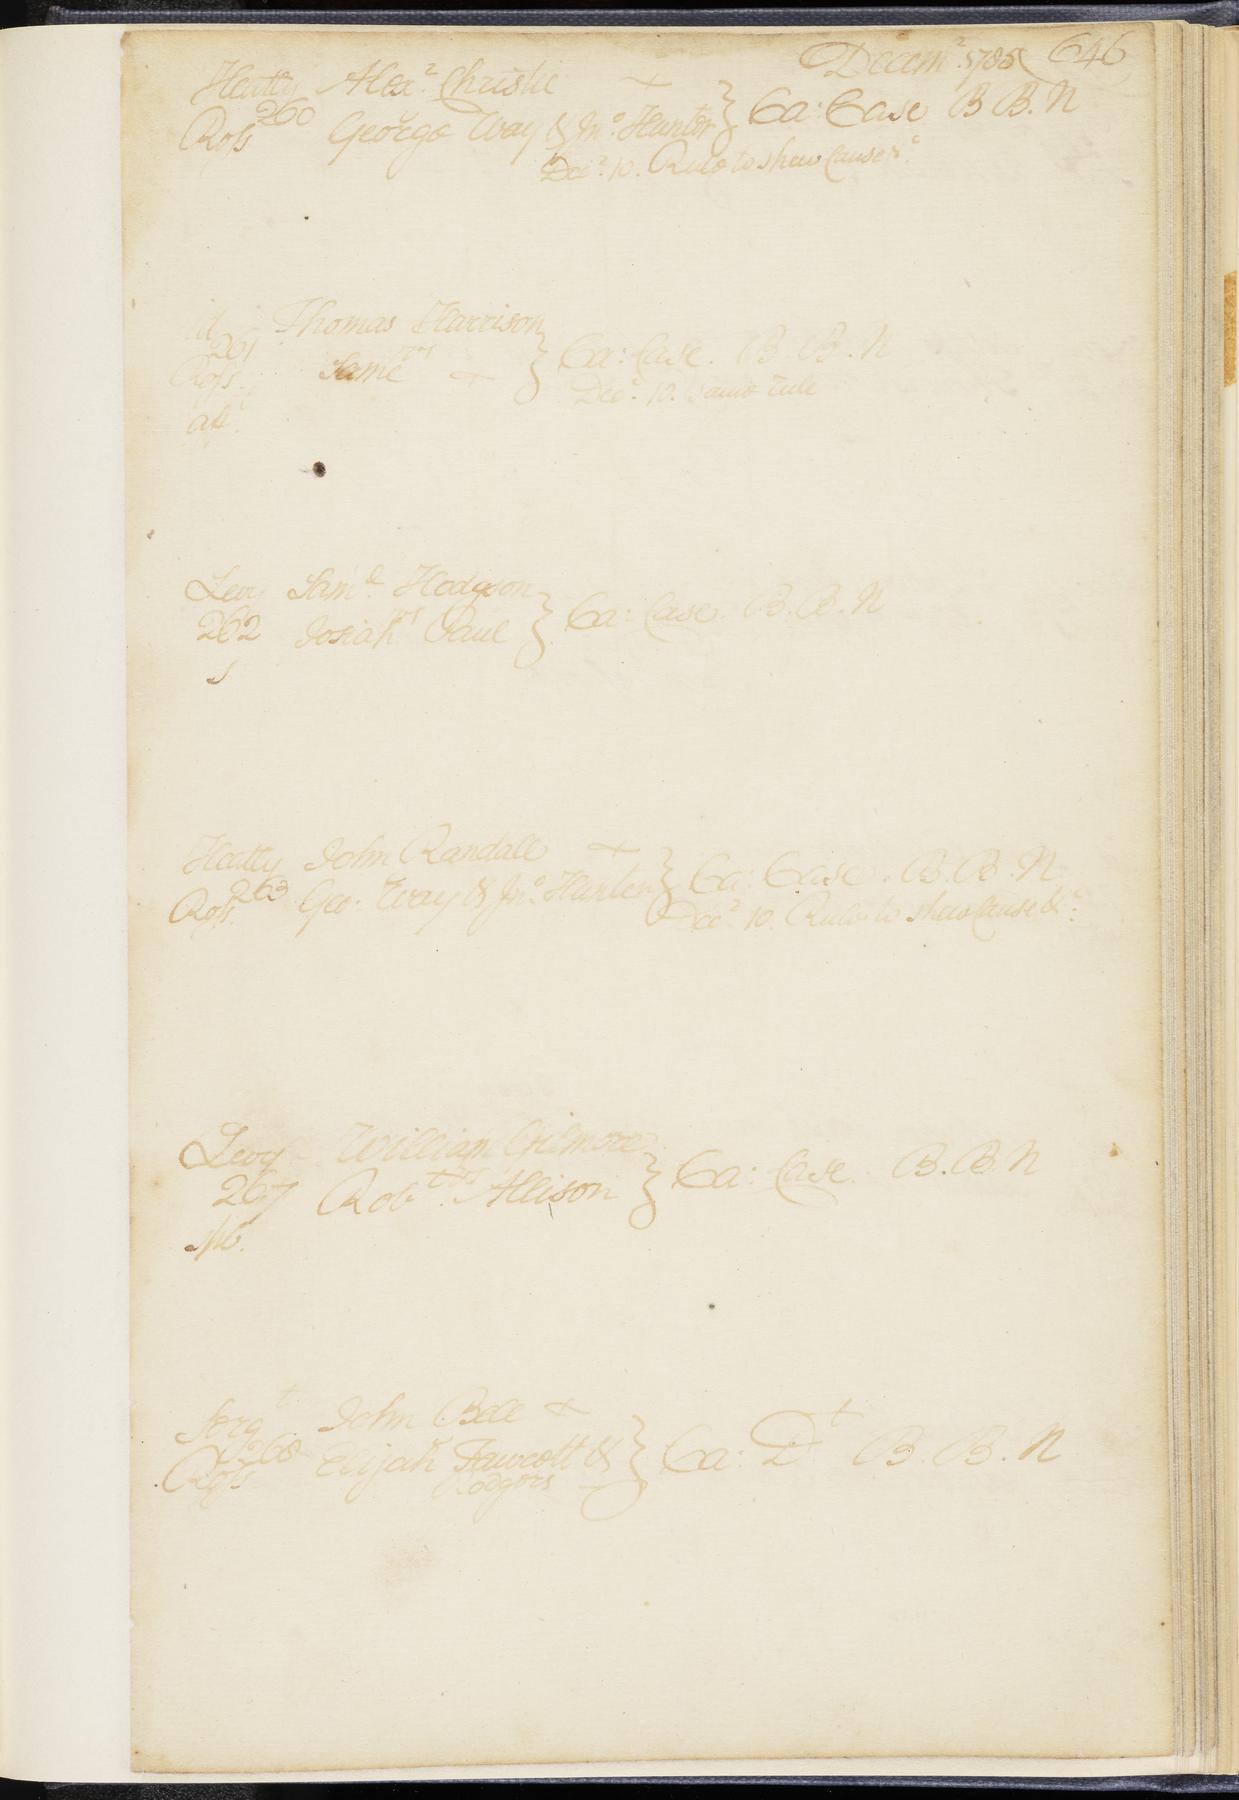 Decem.^r 1785 646
Heatly Alex.^r Christie +
260
Ross George Way & Jn.^o Hunter } Ca: Case B B. N
Dec.^r 10. Rule to shew Cause &.^c
id Thomas Harrison
261
Ross. Same + } Ca: Case. B. B. N
Dec.^r 10. Same rule
Levy Sam.^l Hodgson
262 Josiah Paul } Ca: Case. B. B. N
s
Heatly John Randall +
263
Ross. Geo. Way & Jn.^o Hunter } Ca: Case. B. B. N
Dec.^r 10. Rule to shew Cause &.^c
Levy William Gilmore
267 Rob.^t Allison } Ca: Case. B. B. N
Serg^t John Bell +
268
Ross Elijah Fawcett & } Ca: D^t B. B. N
Rodgers